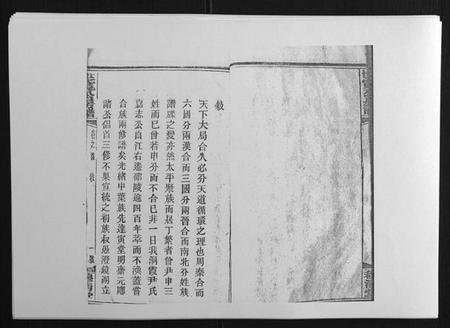 敍
天下大局合久必分天道循環之理也周秦合而
六國分兩漢合而三國分兩晉合而南北分姓族
譜牒之變亦然太平聚族而居丁繁者曾尹申三
姓而已曾若申分而不合已非一日我洞霞尹氏
嘉志公自江右遷邵陵逾四百年萃而不渙蓋嘗
合族兩修譜矣光緒中葉族先達寅堂明齋元廊
諸公倡首三修不果宣統之初族叔愚澄鏡湖立
卷之首 敍 一